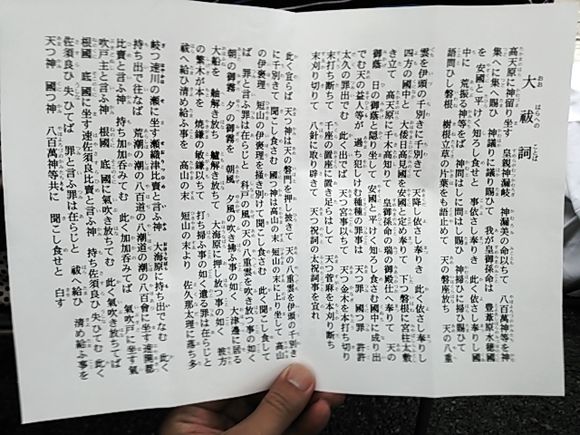 大祓詞
高天原に神留り坐す 皇親神漏岐 神漏美の命以ちて 八百萬神等を神
集へに集へ賜ひ 神議りに議り賜ひて 我が皇御孫命は 豊葦原水穂國
を 安國と平けく知ろし食せと 事依さし奉りき 此く依さし奉りし國
中に 荒振る神等をば 神問はしに問はし賜ひ 神掃ひに掃ひ賜ひて
語問ひし磐根 樹根立草の片葉をも語止めて 天の磐座放ち 天の八重
雲を伊頭の千別きに千別きて 天降し依さし奉りき 此く依さし奉りし
四方の國中と 大倭日高見國を安國と定め奉りて 下つ磐根に宮柱太敷
き立て 高天原に千木高知りて 皇御孫命の瑞の御殿仕へ奉りて 天の
御蔭 日の御蔭と隠り坐して 安國と平けく知ろし食さむ國中に成り出
でむ天の益人等が 過ち犯しけむ種種の罪事は 天つ罪 國つ罪 許許
太久の罪出でむ 此く出でば 天つ宮事以ちて 天つ金木を本打ち切り
末打ち断ちて 千座の置座に置き足らはして 天つ菅麻を本刈り断ち
末刈り切りて 八針に取り辟きて 天つ祝詞の太祝詞事を宣れ
此く宣らば 天つ神は天の磐門を押し披きて 天の八重雲を伊頭の千別き
に千別きて 聞こし食さむ 國つ神は高山の末 短山の末に上り坐して 高山
の伊褒理 短山の伊褒理を掻き別けて聞こし食さむ 此く聞こし食して
ば 罪と言ふ罪は在らじと 科戸の風の天の八重雲を吹き放つ事の如く
朝の御霧 夕の御霧を 朝風 夕風の吹き拂ふ事の如く 大津邊に居る
大船を 舳解き放ち 艫解き放ちて 大海原に押し放つ事の如く 彼方
の繁木が本を 焼鎌の敏鎌以ちて 打ち掃ふ事の如く 遺る罪は在らじと
祓へ給ひ清め給ふ事を 高山の末 短山の末より 佐久那太理に落ち多
岐つ 速川の瀬に坐す瀬織津比賣と言ふ神 大海原に持ち出でなむ 此く
持ち出で往なば 荒潮の潮の八百道の八潮道の潮の八百會に坐す速開都
比賣と言ふ神 持ち加加呑みてむ 此く加加呑みてば 氣吹戸に坐す氣
吹戸主と言ふ神 根國 底國に氣吹き放ちてむ 此く氣吹き放ちてば
根國 底國に坐す速佐須良比賣と言ふ神 持ち佐須良ひ失ひてむ 此く
佐須良ひ失ひてば 罪と言ふ罪は在らじと 祓へ給ひ 清め給ふ事を
天つ神 國つ神 八百萬神等共に 聞こし食せと 白す